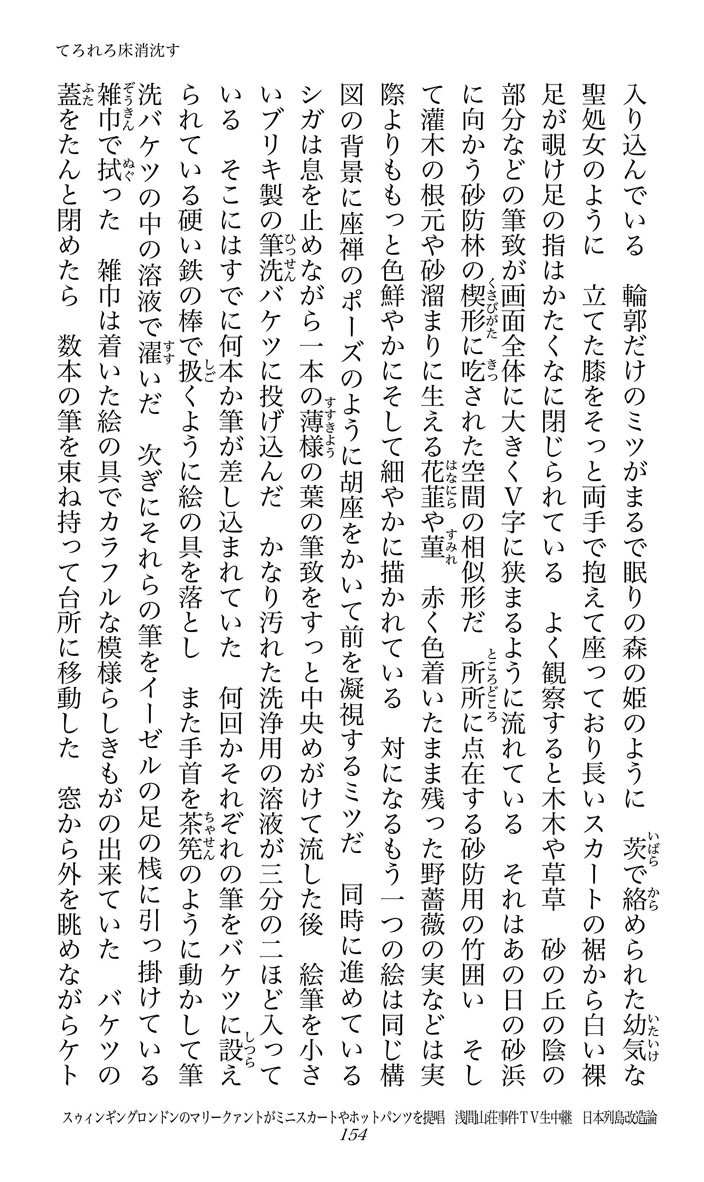 てろれろ床消沈す
入り込んでいる　輪郭だけのミツがまるで眠りの森の姫のように　茨で絡められた幼気な
聖処女のように　立てた膝をそっと両手で抱えて座っており長いスカートの裾から白い裸
足が覗け足の指はかたくなに閉じられている　よく観察すると木木や草草　砂の丘の陰の
部分などの筆致が画面全体に大きくＶ字に狭まるように流れている　それはあの日の砂浜
に向かう砂防林の楔形に吃された空間の相似形だ　所所に点在する砂防用の竹囲い　そし
て灌木の根元や砂溜まりに生える花韮や菫　赤く色着いたまま残った野薔薇の実などは実
際よりももっと色鮮やかにそして細やかに描かれている　対になるもう一つの絵は同じ構
図の背景に座禅のポーズのように胡座をかいて前を凝視するミツだ　同時に進めている
シガは息を止めながら一本の薄様の葉の筆致をすっと中央めがけて流した後　絵筆を小さ
いブリキ製の筆洗バケツに投げ込んだ　かなり汚れた洗浄用の溶液が三分の二ほど入って
いる　そこにはすでに何本か筆が差し込まれていた　何回かそれぞれの筆をバケツに設え
られている硬い鉄の棒で扱くように絵の具を落とし　また手首を茶筅のように動かして筆
洗バケツの中の溶液で濯いだ　次ぎにそれらの筆をイーゼルの足の桟に引っ掛けている
雑巾で拭った　雑巾は着いた絵の具でカラフルな模様らしきもがの出来ていた　バケツの
蓋をたんと閉めたら　数本の筆を束ね持って台所に移動した　窓から外を眺めながらケト
スゥィンギングロンドンのマリークァントがミニスカートやホットパンツを提唱　浅間山荘事件ＴＶ生中継　日本列島改造論
154